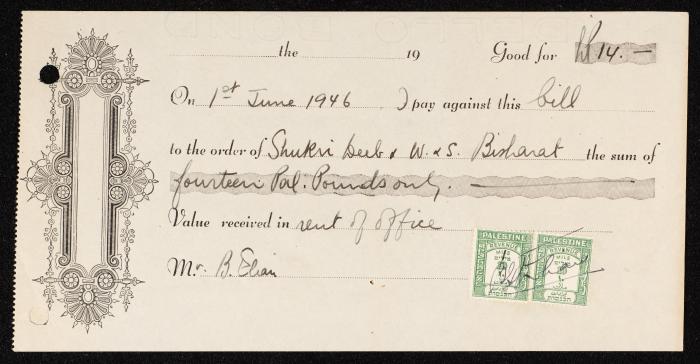 the 19 Good for £P 14.—
On 1st June 1946 I pay against this bill
to the order of Shukri Deeb & W. & S. Bisharat the sum of
fourteen Pal. Pounds only. —
Value received in rent of office
Mr. B. Elian
PALESTINE PALESTINE
REVENUE REVENUE
MILS MILS